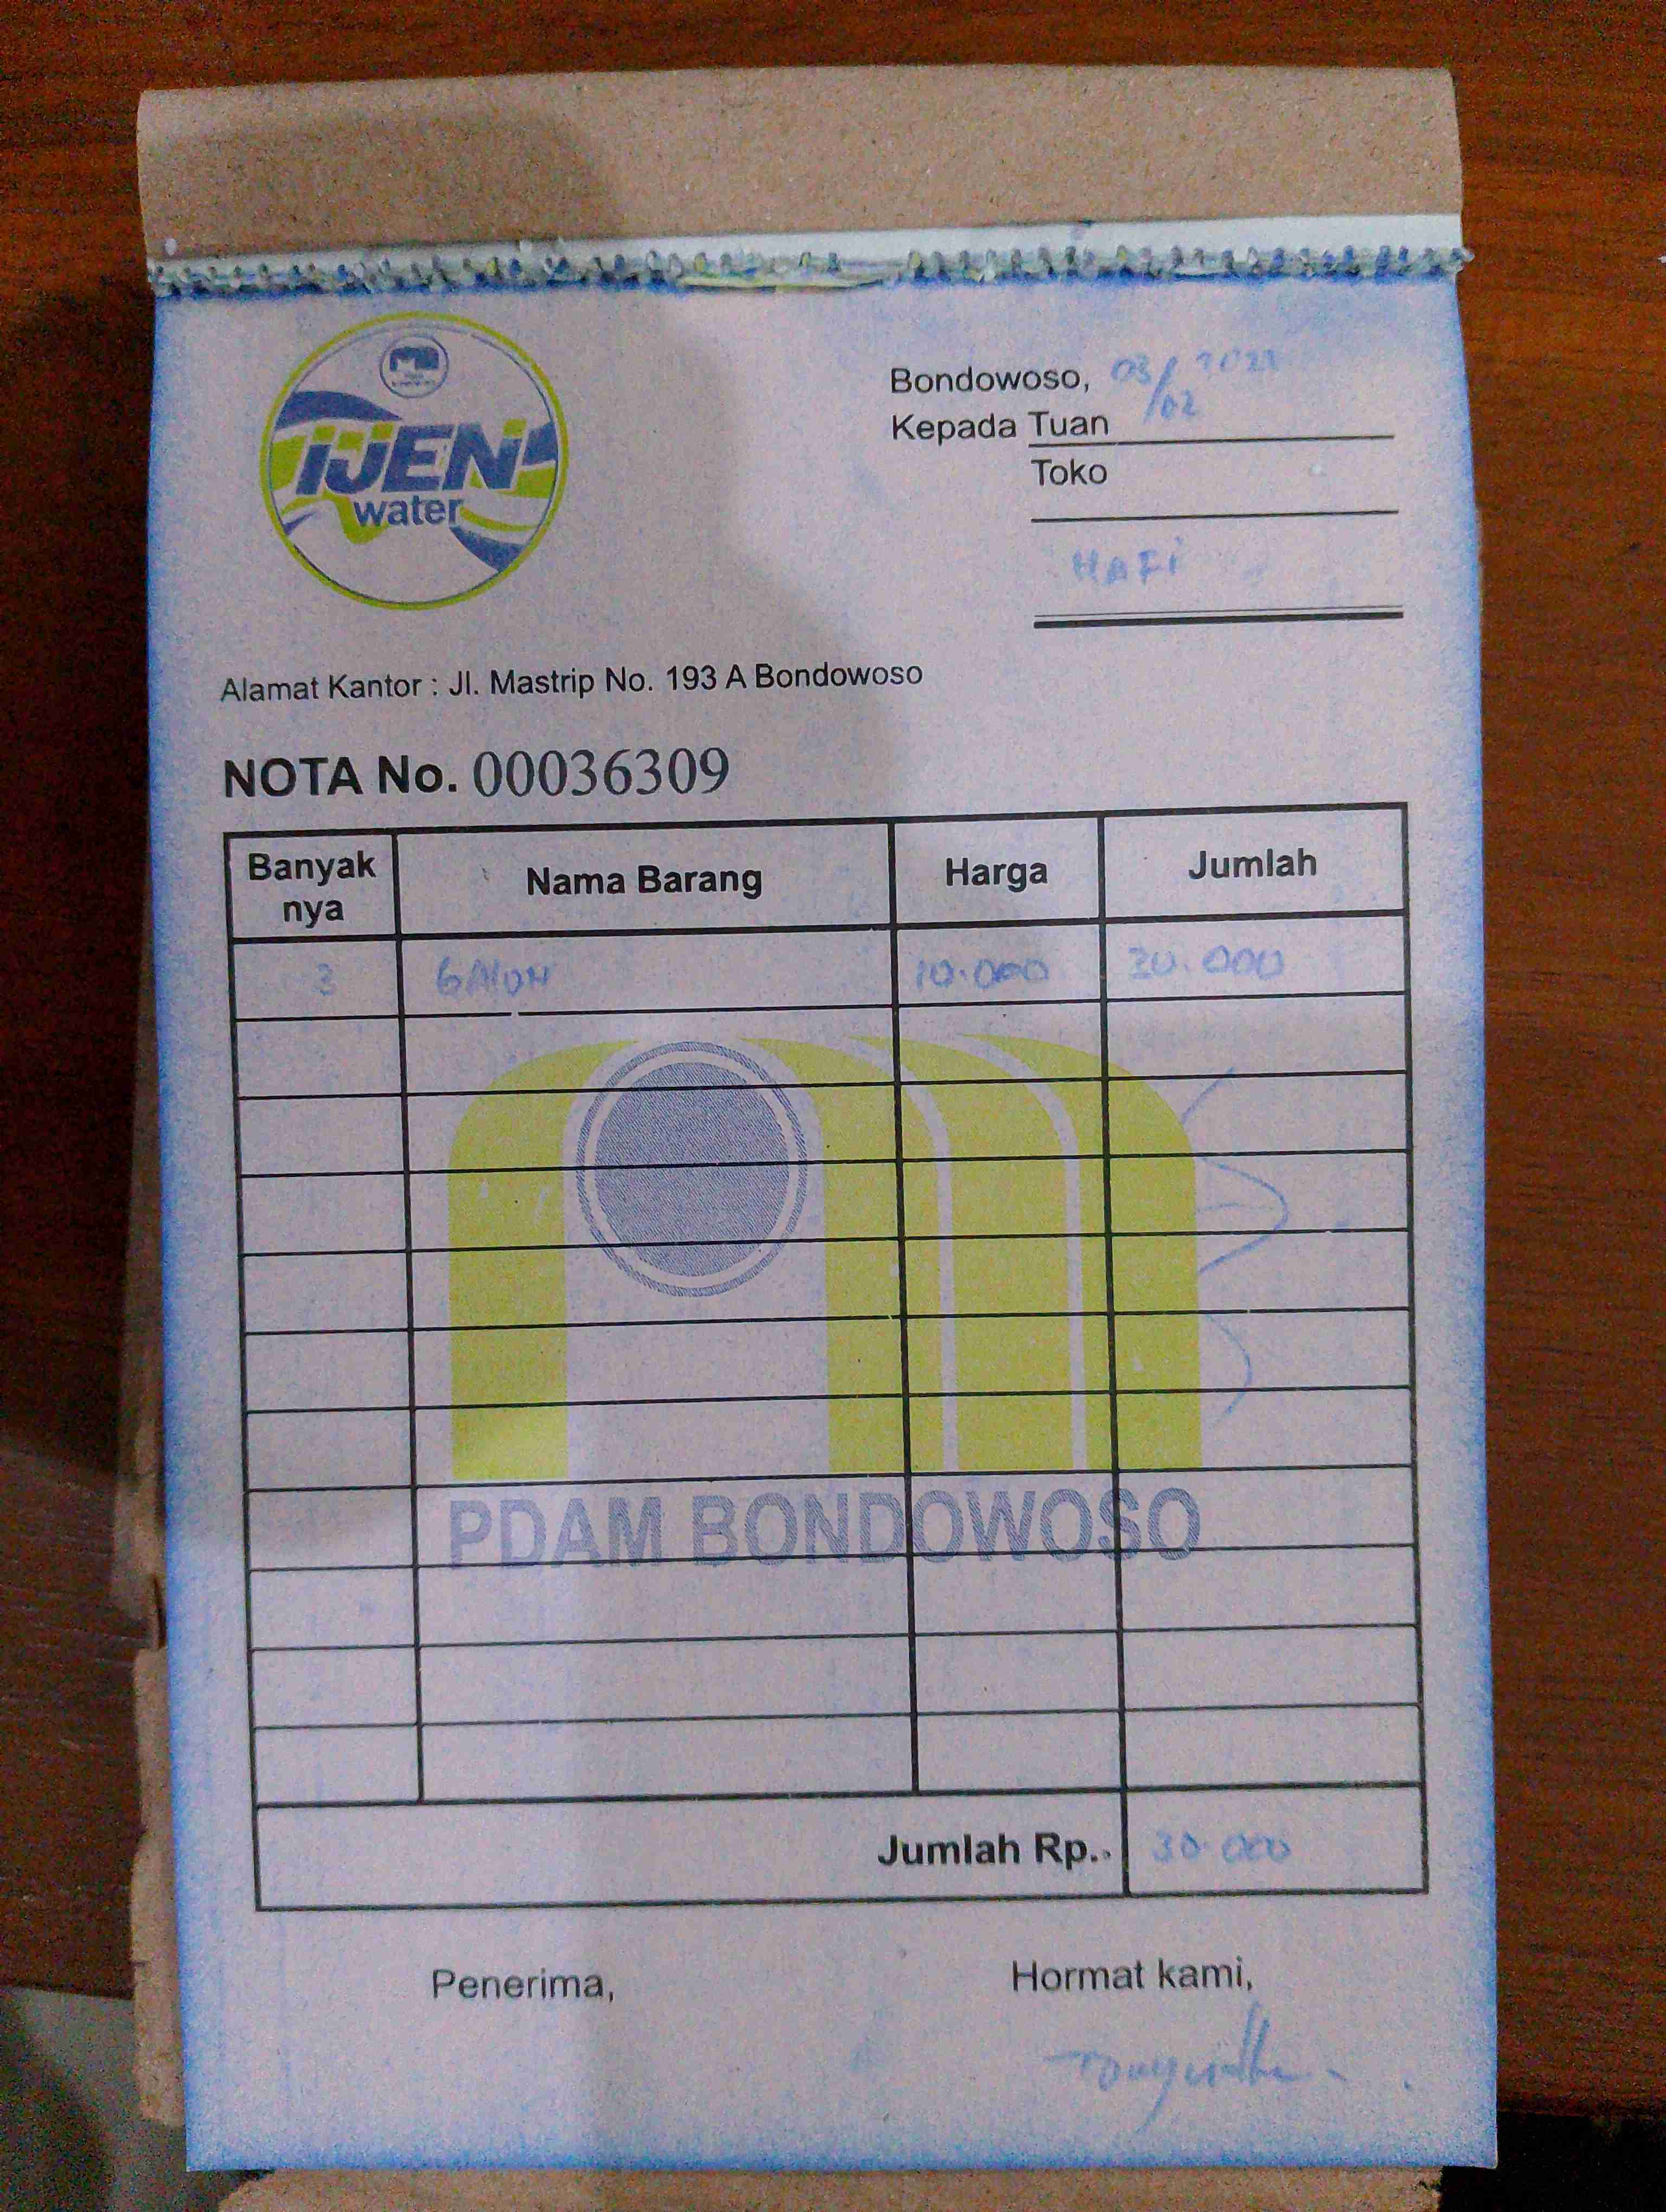 iJEN
water
Bondowoso, 03/02
Kepada Tuan
Toko
HAFi
Alamat Kantor : Jl. Mastrip No. 193 A Bondowoso
NOTA No. 00036309
Banyak nya Nama Barang Harga Jumlah
3 GAlON 10.000 30.000
PDAM BONDOWOSO
Jumlah Rp. 30.000
Penerima, Hormat kami,